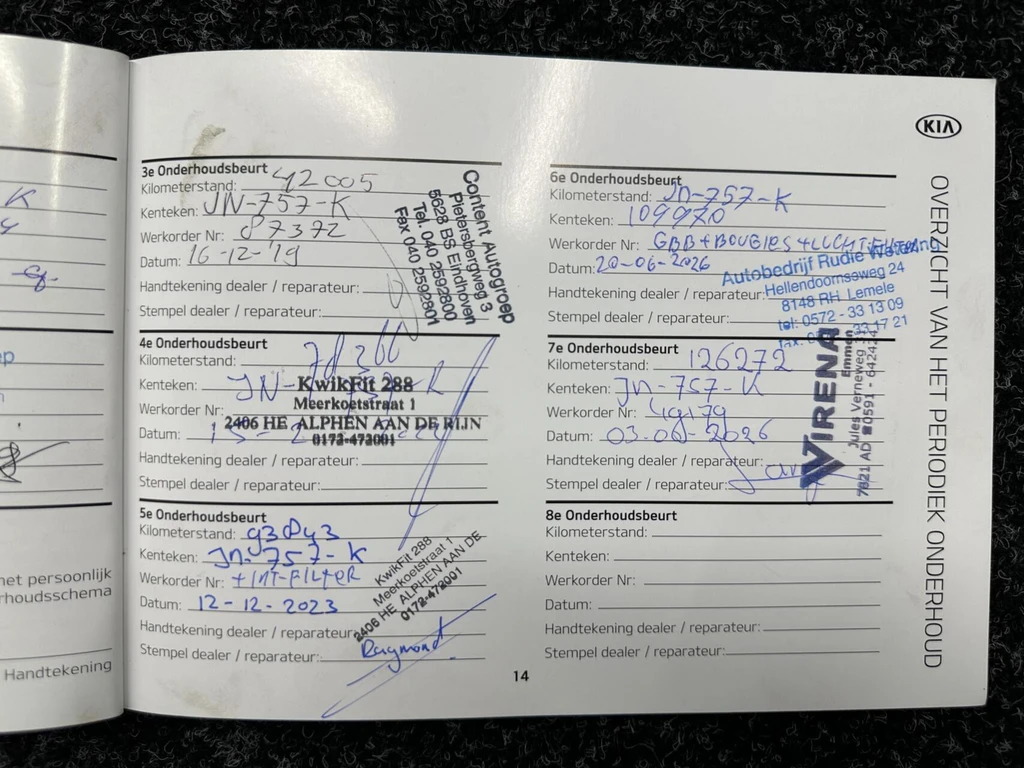 K
3e Onderhoudsbeurt
Kilometerstand: 42005
Kenteken: JN-757-K
Werkorder Nr: 87372
Datum: 16-12-'19
Handtekening dealer / reparateur:
Stempel dealer / reparateur:
Content Autogroep
Pietersbergweg 3
5628 BS Eindhoven
Tel. 040 2592800
Fax 040 2592801
4e Onderhoudsbeurt
Kilometerstand:
Kenteken: JN-
Werkorder Nr:
Datum:
Handtekening dealer / reparateur:
Stempel dealer / reparateur:
KwikFit 288
Meerkoetstraat 1
2406 HE ALPHEN AAN DE RIJN
0172-472001
5e Onderhoudsbeurt
Kilometerstand: 93843
Kenteken: JN-757-K
Werkorder Nr: + INT-FILTER
Datum: 12-12-2023
Handtekening dealer / reparateur:
Stempel dealer / reparateur: Raymond
KwikFit 288
Meerkoetstraat 1
2406 HE ALPHEN AAN DE
0172-472001
6e Onderhoudsbeurt
Kilometerstand: JN-757-K
Kenteken: 109970
Werkorder Nr: GBB + BOUGIES + LUCHT
Datum: 20-06-2026
Handtekening dealer / reparateur:
Stempel dealer / reparateur:
Autobedrijf Rudie
Hellendoornseweg 24
8148 RH Lemele
tel: 0572 - 33 13 09
fax: 33 17 21
7e Onderhoudsbeurt
Kilometerstand: 126272
Kenteken: JN-757-K
Werkorder Nr: 49179
Datum: 03-06-2026
Handtekening dealer / reparateur:
Stempel dealer / reparateur:
VIRENA
Emmen
Jules Verneweg
7821 AD ☎0591 - 642424
8e Onderhoudsbeurt
Kilometerstand:
Kenteken:
Werkorder Nr:
Datum:
Handtekening dealer / reparateur:
Stempel dealer / reparateur:
KIA
OVERZICHT VAN HET PERIODIEK ONDERHOUD
het persoonlijk
rhoudsschema
Handtekening
14